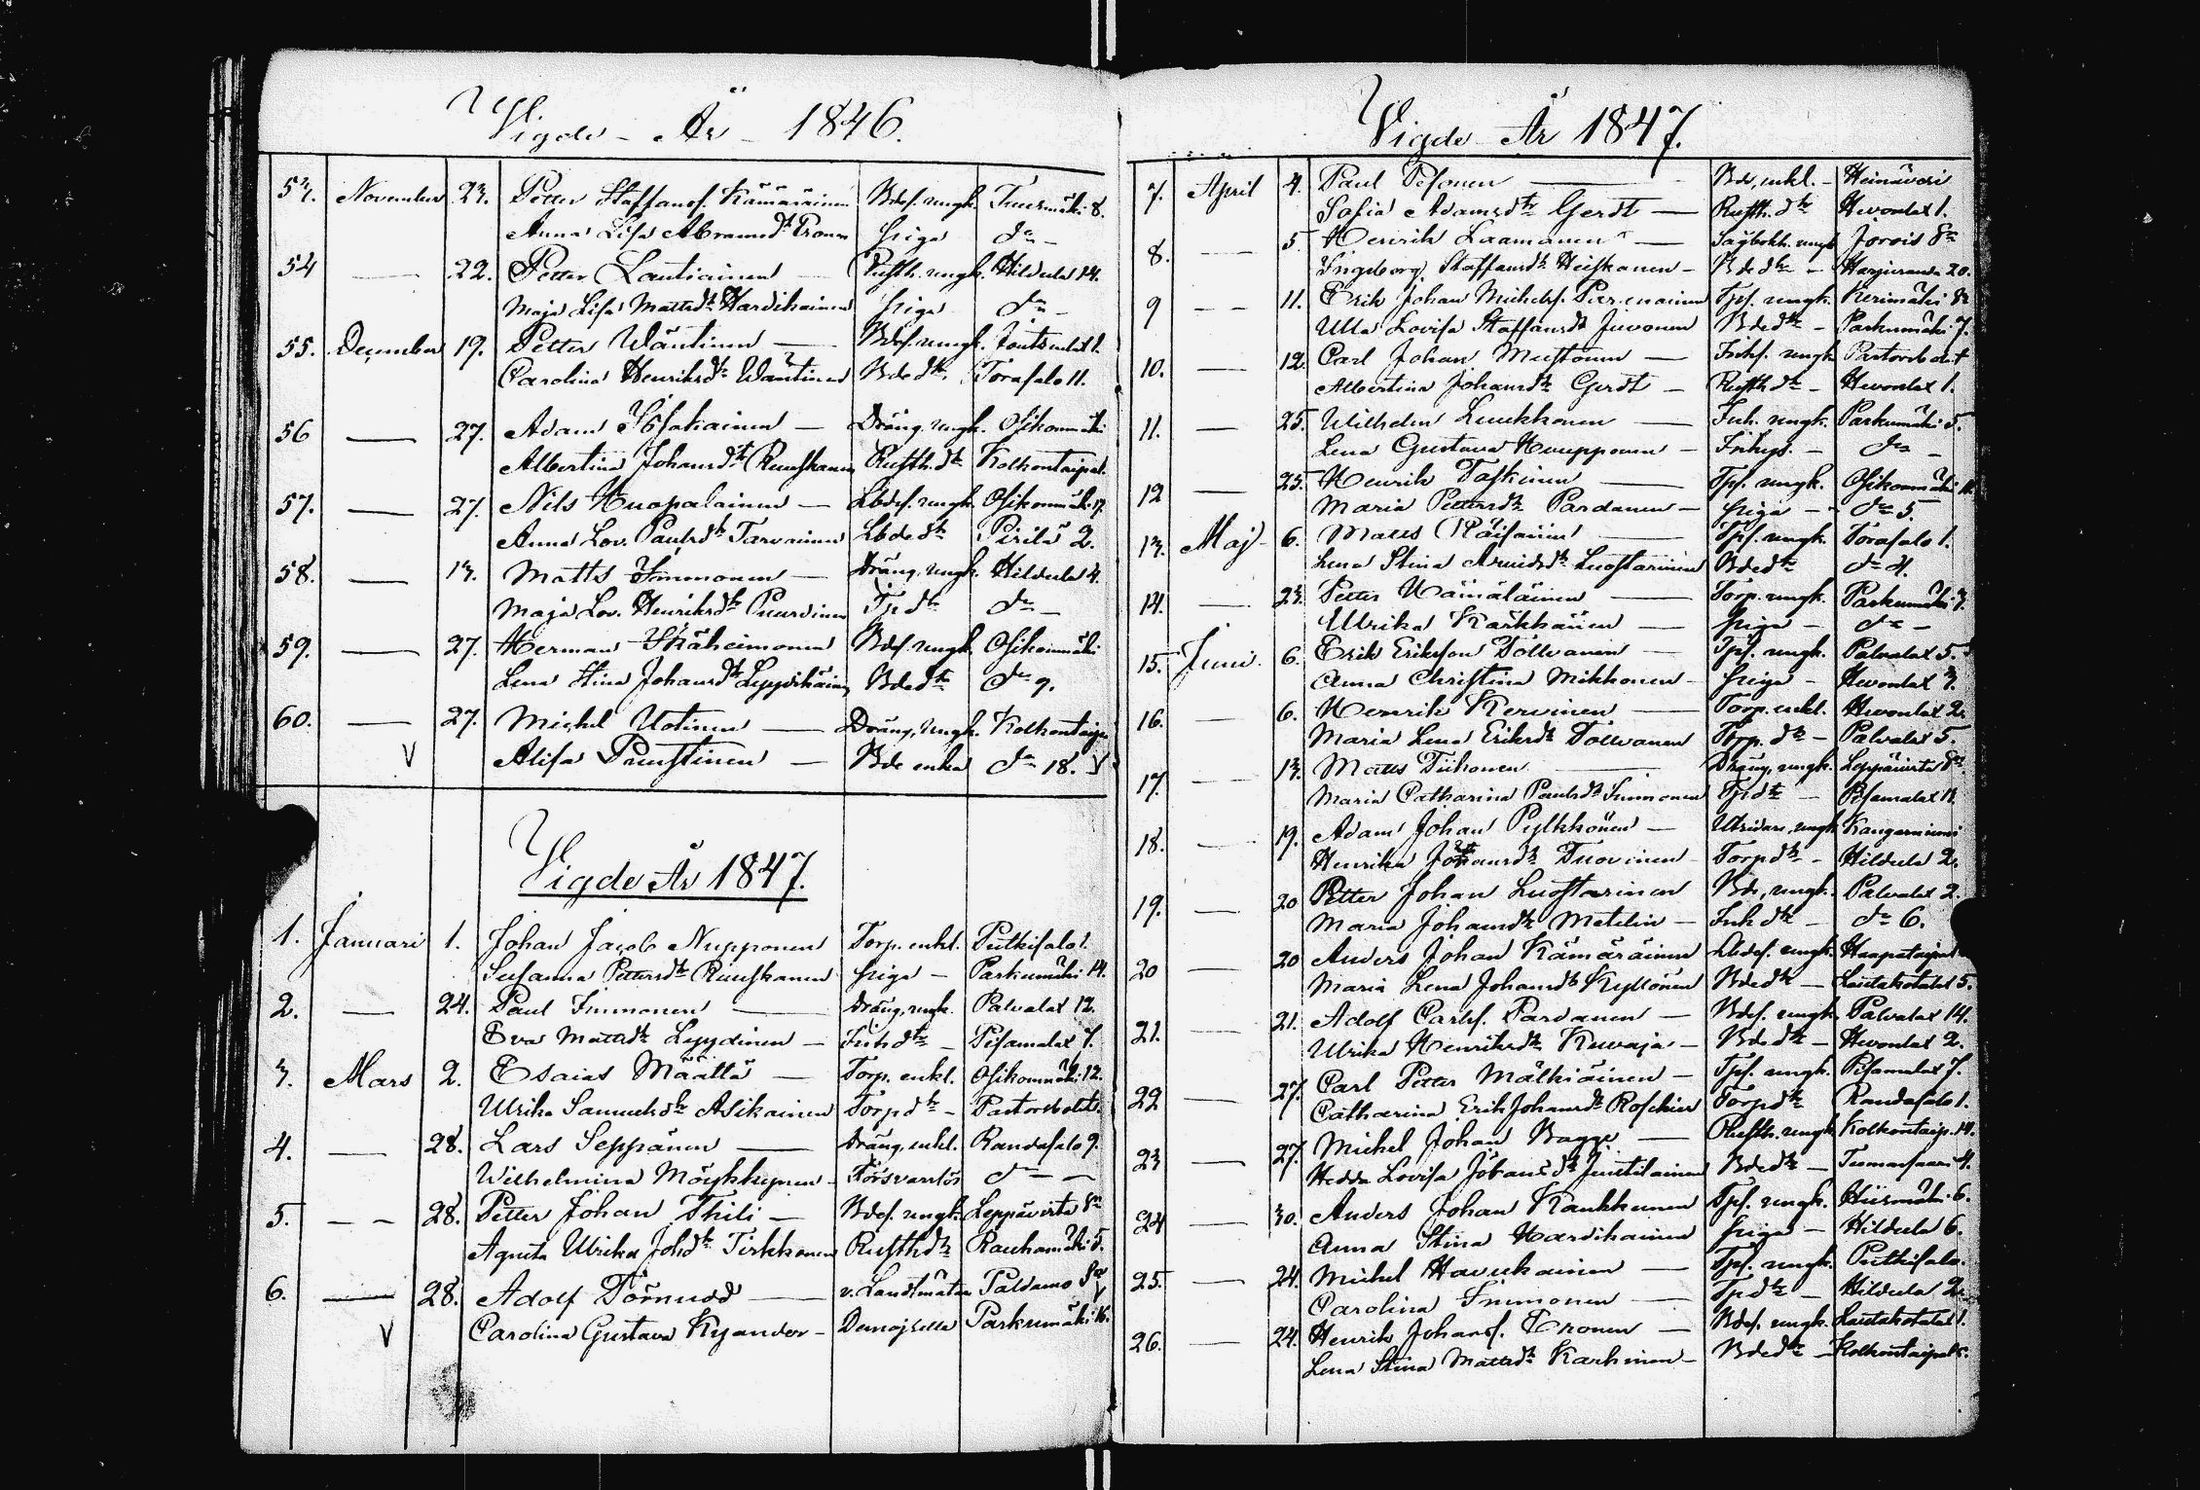 Vigde - År - 1846.
53. November 23. Petter Staffansf. Kämäräinen Bdsf. ungk. Tuusmäki 8.
Anna Lisa Abramsdtr Kronen piga do -
54 — 22. Petter Lautiainen — Rusth. ungk. Hildula 14.
Maja Lisa Mattsdtr Hardikainen piga do -
55. December 19. Petter Wäntinen — Bdsf. ungk.
Carolina Henriksdtr Wäntinen Bdedtr. Torasalo 11.
56 — 27. Adam — Dräng, ungk. Osikonmäki
Albertina Johansdtr Ruuskanen Rusth.dtr Kolkontaipal.
57. — 27. Nils Kuopalainen — Lbdsf. ungk. Osikonmäki 17.
Anna Lov. Paulsdtr Tarvainen Lbdedtr Pirilä 2.
58. — 13. Matts Immonen — Dräng, ungk. Hildula 4.
Maja Lov. Henriksdtr Tpdtr do —
59. — 27. Herman Bdsf. ungk Osikonmäki
Lena Stina Johansdtr Leppikäinen Bdedtr do 9.
60. — 27. Michel Utinen — Dräng, ungk. Kolkontaipa
V Alisa Paustinen — Bde enka do 18. V
Vigde År 1847.
1. Januari 1. Johan Jacob Nupponen Torp. enkl. Putkisalo 1.
Susanna Pettersdtr Ruuskanen piga — Parkumäki 14.
2. — 24. Paul Immonen — Dräng, ungk. Palvalax 12.
Eva Mattsdtr Leppinen — Inhdtr — Pisamalax 7.
3. Mars 2. Esaias Määttä — Torp. enkl. Osikonmäki 12.
Ulrika Samuelsdtr Asikainen Torpdtr — Pastorsbolet.
4. — 28. Lars Seppänen — Dräng, enkl. Randasalo 9.
Wilhelmina Möykkynen — Försvarslös do — —
5. — — 28. Petter Johan Thili — Bdsf. ungk. Leppävirta Sn
Agneta Ulrika Johdtr Tirkkonen Rusthdtr Rauhamäki 5.
6. — 28. Adolf Törnudd — v. Landtmätare Paldamo Sn V
V Carolina Gustava Kyander — Demoiselle Parkumäki 16.
Vigde - År 1847.
7. April 4. Paul Pesonen — Bde, enkl. — Heinävesi
Sofia Adamsdtr Gerdt — Rusth.dtr Hevonlax 1.
8. — 5. Henrik Laamanen — ungk Jorois Sn
Ingeborg Staffansdtr Heiskanen — Bdedtr — Harjuranda 20.
9 — — 11. Erik Johan Michelsf. Tpsf. ungk. Kerimäki Sn
Ulla Lovisa Staffansdtr Juvonen Bdedtr — Parkumäki 7.
10. — 12. Carl Johan Mustonen — Inhsf. ungk Pastorsbolet
Albertina Johansdtr Gerdt — Rusth dtr — Hevonlax 1.
11. — 25. Wilhelm Luukkonen — Inh. ungk. Parkumäki 5.
Lena Gustava Kaupponen — Inhys. — do —
12 — 25. Henrik Taskinen — Tpsf. ungk. Osikonmäki 11.
Maria Pettersdtr Pardanen — piga — do 5.
13. Maj — 6. Matts Räisänen — Tpsf. ungk. Torasalo 1.
Lena Stina Arvidsdtr Luostarinen Bdedtr do 4.
14. — 23. Petter Wäinäläinen — Torp. ungk. Parkumäki 3.
Ulrika Kärkkäinen — piga — do —
15. Juni. 6. Erik Eriksson Tollvanen — Tpsf. ungk. Palvalax 5.
Anna Christina Mikkonen — piga — Hevonlax 3.
16. — 6. Henrik Kervinen — Torp. enkl. Hevonlax 2.
Maria Lena Eriksdtr Tollvanen Torp. dtr — Palvalax 5.
17. — 13. Matts Tiihonen — Dräng, ungk. Leppävirta Sn.
Maria Catharina Paulsdtr Immonen Tpdtr — Pisamalax 13.
18. — 19. Adam Johan Pylkkönen — ungk Kangasniemi
Henrika Johansdtr Tuovinen — Torpdtr — Hildula 2.
19. — 20 Petter Johan Luostarinen Bde, ungk. Palvalax 2.
Maria Johansdtr Metelin — Inh dtr — do 6.
20 — 20 Anders Johan Kämäräinen Lbdsf. ungk. Haapataipal
Maria Lena Johansdtr Kyllönen Bdedtr — Lautakotalax 5.
21. — 21. Adolf Carlsf. Pardanen — Bdsf. ungk. Palvalax 14.
Ulrika Henriksdtr Kuvaja — Bdedtr — Hevonlax 2.
22 — 27. Carl Petter Mälkiäinen — Tpsf. ungk. Pisamalax 7.
Catharina Erik Johansdtr Roschier Torpdtr Randasalo 1.
23 — 27. Michel Johan Bagge — Rusth. ungk Kolkontaip. 14.
Hedda Lovisa Johansdtr Juutilainen Bdedtr — 4.
24 — 30. Anders Johan Kankkunen Tpsf. ungk. Hiismäki 6.
Anna Stina Hardikainen piga — Hildula 6.
25. — 24. Michel Haukainen — Tpsf. ungk. Putkisalo.
Carolina Immonen — Tpdtr — Hildula 2.
26. — 24. Henrik Johansf. Kronen — Bdsf. ungk. Lautakotalax 1.
Lena Stina Mattsdtr Karhinen — Bdedtr — Kolkontaipal